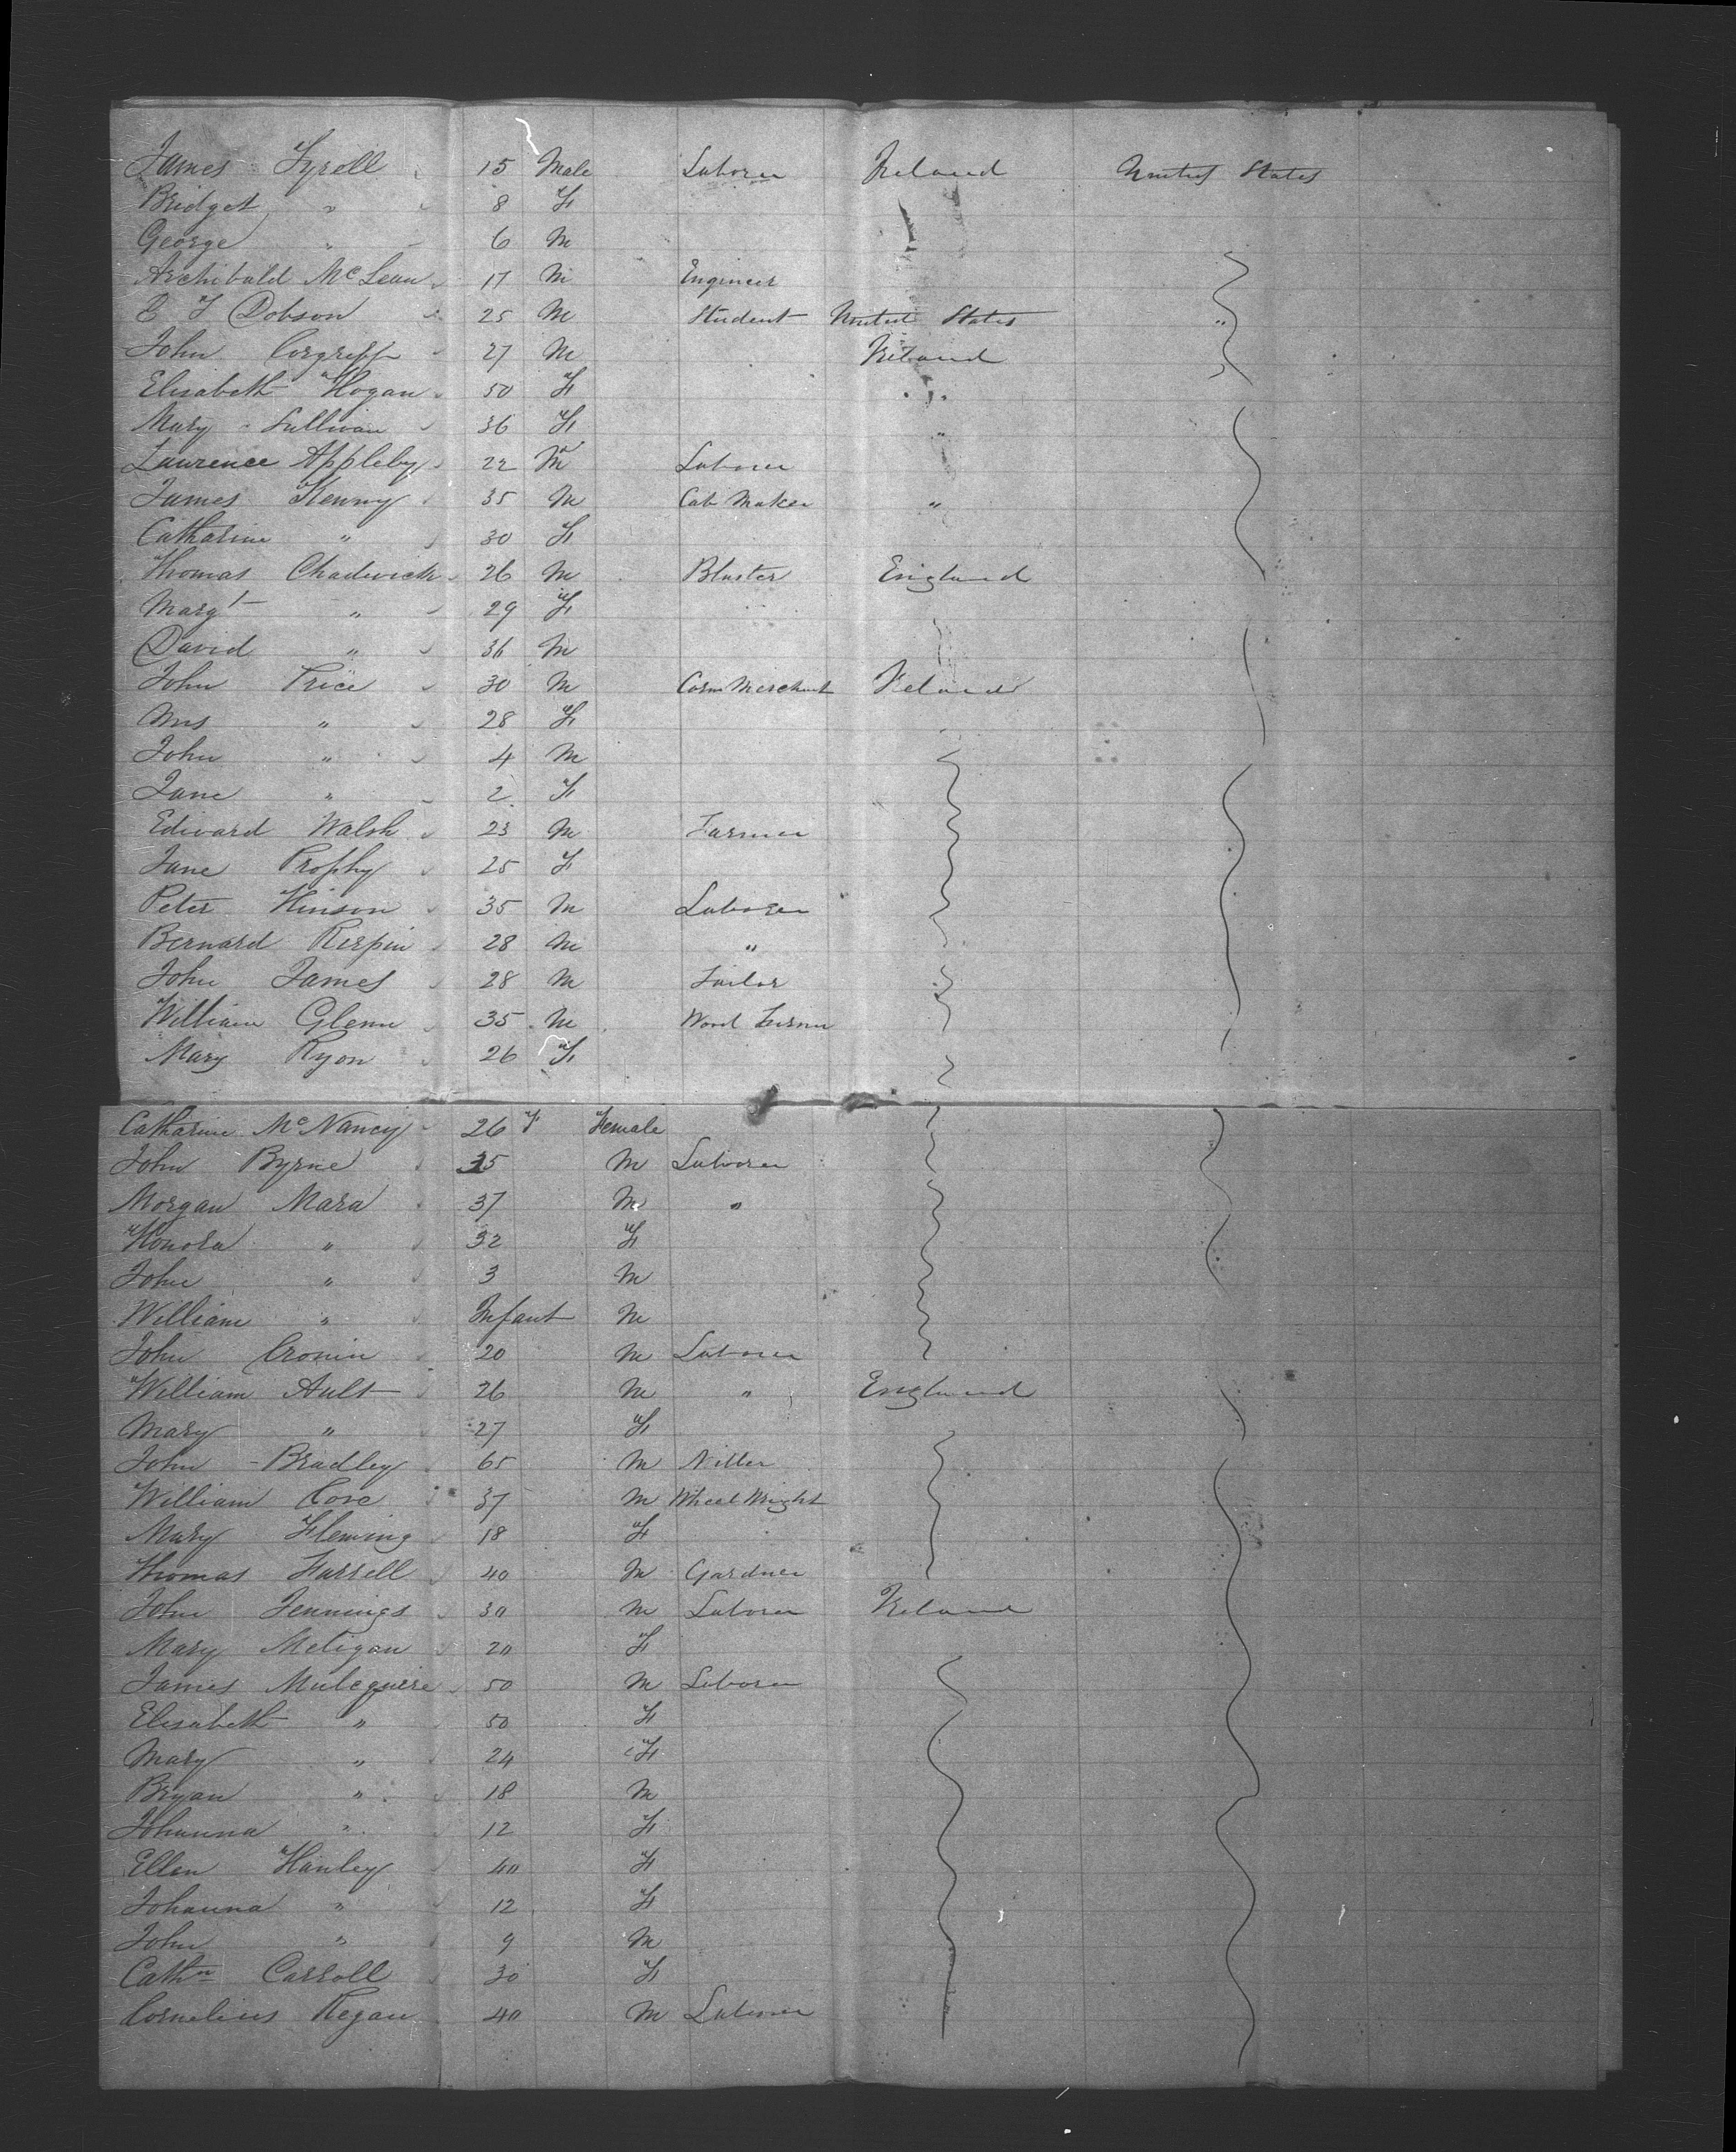 James Tyrell 15 Male Laborer Ireland United States
Bridget " 8 F
George " 6 M
Archibald McLean 17 M Engineer
E T Dobson 25 M Student United States "
John Corgriff 27 M Ireland
Elisabeth Hogan 50 F "
Mary Sullivan 36 F "
Lawrence Appleby 22 M Laborer
James Kenny 35 M Cab Maker "
Catharine " 30 F
Thomas Chadwick 26 M Blaster England
Margt " 29 F
David " 36 M
John Price 30 M Corn Merchant Ireland
Mrs " 28 F
John " 4 M
Jane " 2 F
Edward Walsh 23 M Farmer
Jane Prophy 25 F
Peter Hinson 35 M Laborer
Bernard Rispin 28 M "
John James 28 M Tailor
William Glenn 35 M Wood
Mary Ryon 26 F
Catharine McNancy 26 F Female
John Byrne 35 M Laborer
Morgan Mara 37 M "
Honora " 32 F
John " 3 M
William " Infant M
John Cronin 20 M Laborer
William Ault 26 M " England
Mary " 27 F
John Bradley 65 M
William Cove 37 M Wheel Wright
Mary Fleming 18 F
Thomas Farrell 40 M Gardner
John Jennings 30 M Laborer Ireland
Mary Metigan 20 F
James 50 M Laborer
Elisabeth " 50 F
Mary " 24 F
Bryan " 18 M
Johanna " 12 F
Ellen Hanley 40 F
Johanna " 12 F
John " 9 M
Cathn Carroll 30 F
Cornelius Regan 40 M Laborer